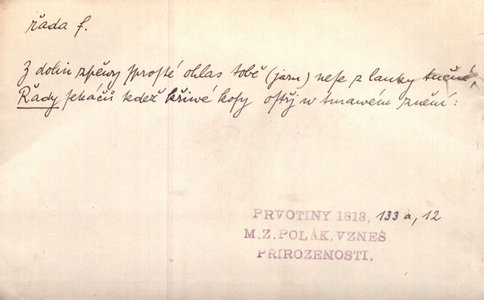 řada f.
Z dolin zpěwy prosté ohlas tobě (jaru) nese z lauky tučné,
Řady sekáčů kdež křiwé kosy ostřj w tmawém znění:
PRVOTINY 1813, 133 a, 12
M. Z. POLÁK, VZNEŠ
PŘIROZENOSTI.